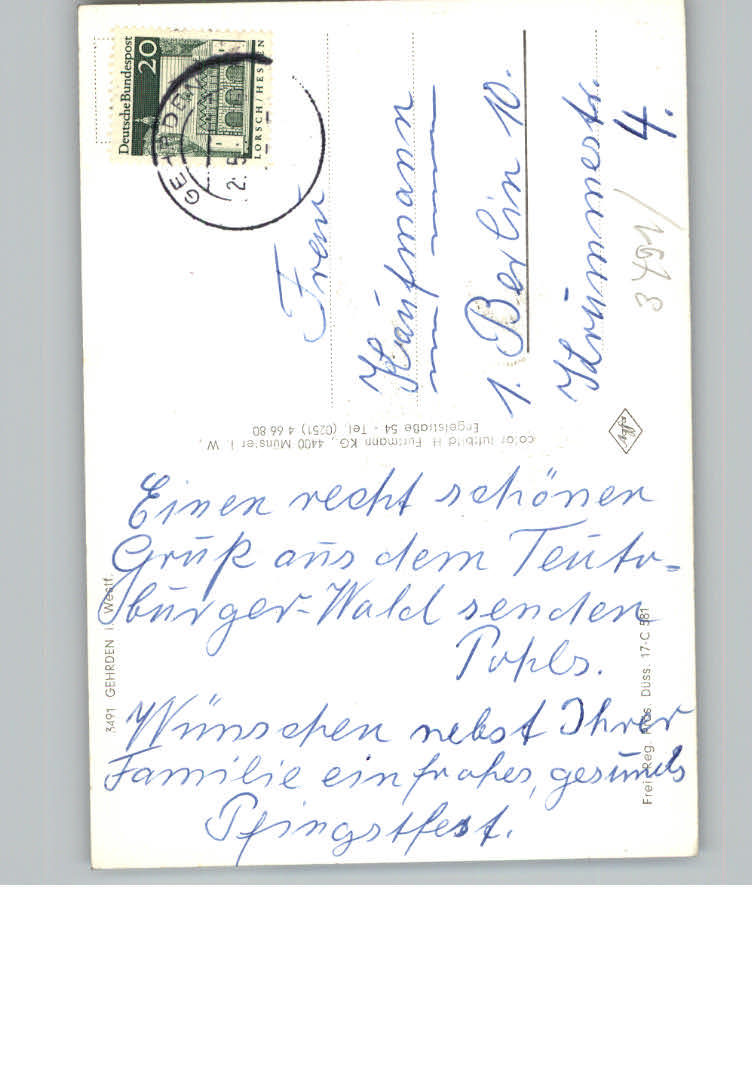 Deutsche Bundespost
20
LORSCH/HESSEN
GEHRDEN
Frau
Kaufmann
1. Berlin 10.
Krummestr.
4.
3491/
color luftbild H. Fuhrmann KG., 4400 Münster i. W.,
Engelstraße 54 - Tel. (0251) 4 66 80
Agfa
Einen recht schönen
Gruß aus dem Teuto-
burger-Wald senden
Pohls.
Wünschen nebst Ihrer
Familie ein frohes, gesundes
Pfingstfest.
3491 GEHRDEN i. Westf.
Freig. Reg. Präs. Düss. 17-C 581